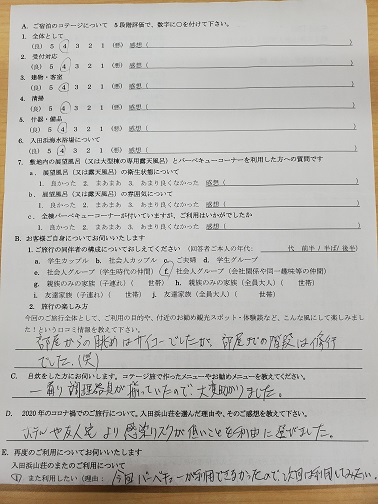 A. ご宿泊のコテージについて 5段階評価で、数字に○を付けて下さい。
1. 全体として
(良) 5 4 3 2 1 (悪) 感想 ( )
2. 受付対応
(良) 5 4 3 2 1 (悪) 感想 ( )
3. 建物・客室
(良) 5 4 3 2 1 (悪) 感想 ( )
4. 清掃
(良) 5 4 3 2 1 (悪) 感想 ( )
5. 什器・備品
(良) 5 4 3 2 1 (悪) 感想 ( )
6. 入田浜海水浴場について
(良) 5 4 3 2 1 (悪) 感想 ( )
7. 敷地内の展望風呂(又は大型棟の専用露天風呂)とバーベキューコーナーを利用した方への質問です
a. 展望風呂(又は露天風呂)の衛生状態について
1. 良かった 2. まあまあ 3. あまり良くなかった 感想 ( )
b. 展望風呂(又は露天風呂)の雰囲気について
1. 良かった 2. まあまあ 3. あまり良くなかった 感想 ( )
c. 全棟バーベキューコーナーが付いていますが、ご利用はいかがでしたか
1. 良かった 2. まあまあ 3. あまり良くなかった 感想 ( )
B. お客様ご自身についてお伺いいたします
1. ご旅行の同伴者の構成についておしえてください (回答者ご本人の年代: 代 前半/半ば/後半)
a. 学生カップル b. 社会人カップル c. ご夫婦 d. 学生グループ
e. 社会人グループ(学生時代の仲間) f. 社会人グループ(会社関係や同一趣味等の仲間)
g. 親族のみの家族(子連れ)( 世帯) h. 親族のみの家族(全員大人)( 世帯)
i. 友達家族(子連れ)( 世帯) j. 友達家族(全員大人)( 世帯)
2. 旅行の楽しみ方
今回のご旅行全体として、ご利用の目的や、付近のお勧め観光スポット・体験談など、こんな風にして楽しみまし
た!というロコミ情報を教えて下さい。
部屋からの眺めはサイコーでしたが、部屋までの階段は修行
でした。(笑)
C. 自炊をした方にお伺いします。コテージ旅で作ったメニューやお勧めメニューを教えてください。
一通り調理器具が揃っていたので大変助かりました。
D. 2020年のコロナ禍でのご旅行について。入田浜山荘を選んだ理由や、そのご感想を教えて下さい。
ホテルや友人宅より感染リスクが低いことを利由に選びました。
E. 再度のご利用についてお伺いいたします
入田浜山荘のまたのご利用について
① また利用したい(理由: 今回バーベキューが利用できなかったので、次回は利用してみたい。